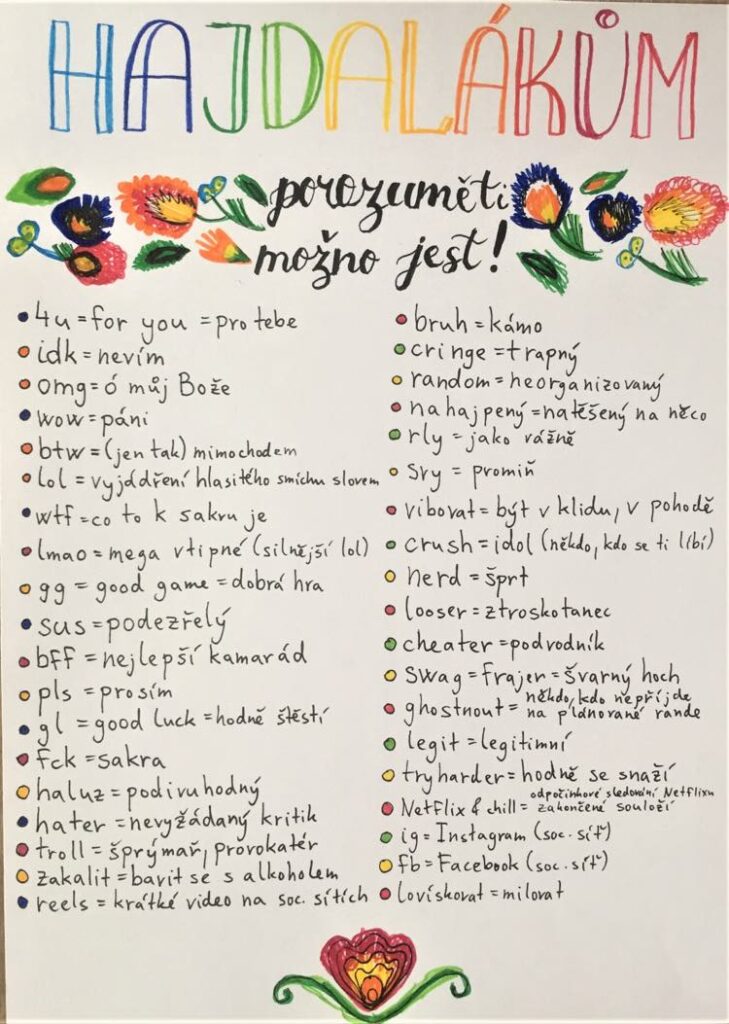 HAJDALÁKŮM
porozuměti
možno jest!
4u = for you = pro tebe
idk = nevím
omg = ó můj Bože
wow = páni
btw = (jen tak) mimochodem
lol = vyjádření hlasitého smíchu slovem
wtf = co to k sakru je
lmao = mega vtipné (silnější lol)
gg = good game = dobrá hra
sus = podezřelý
bff = nejlepší kamarád
pls = prosím
gl = good luck = hodně štěstí
fck = sakra
haluz = podivuhodný
hater = nevyžádaný kritik
troll = šprýmař, provokatér
zakalit = bavit se s alkoholem
reels = krátké video na soc. sítích
bruh = kámo
cringe = trapný
random = neorganizovaný
nahajpený = natěšený na něco
rly = jako vážně
sry = promiň
vibovat = být v klidu, v pohodě
crush = idol (někdo, kdo se ti líbí)
nerd = šprt
looser = ztroskotanec
cheater = podvodník
swag = frajer = švarný hoch
ghostnout = někdo, kdo nepřijde
na plánované rande
legit = legitimní
tryharder = hodně se snaží
Netflix & chill = odpočinkové sledování Netflixu
zakončené souloží
ig = Instagram (soc. síť)
fb = Facebook (soc. síť)
lovískovat = milovat